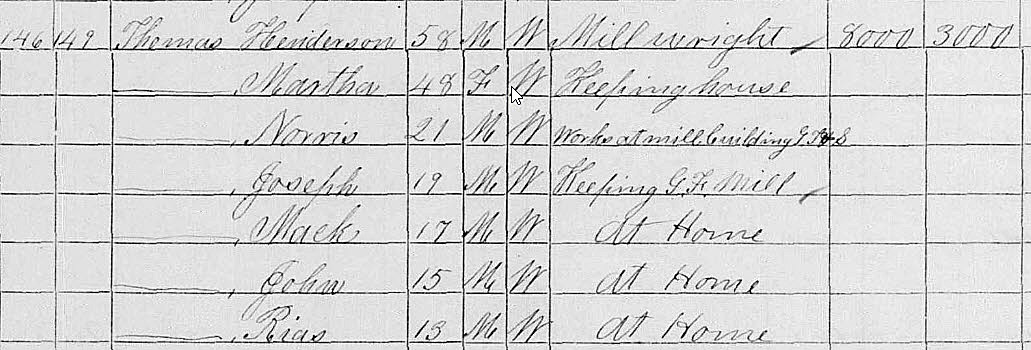 146 149 Thomas Henderson 58 M W Mill wright 8000 3000
Martha 48 F W Keeping house
Norris 21 M W Works at mill building G. F & S
Joseph 19 M W Keeping G. F. Mill
Mack 17 M W at Home
John 15 M W at Home
Rias 13 M W at Home